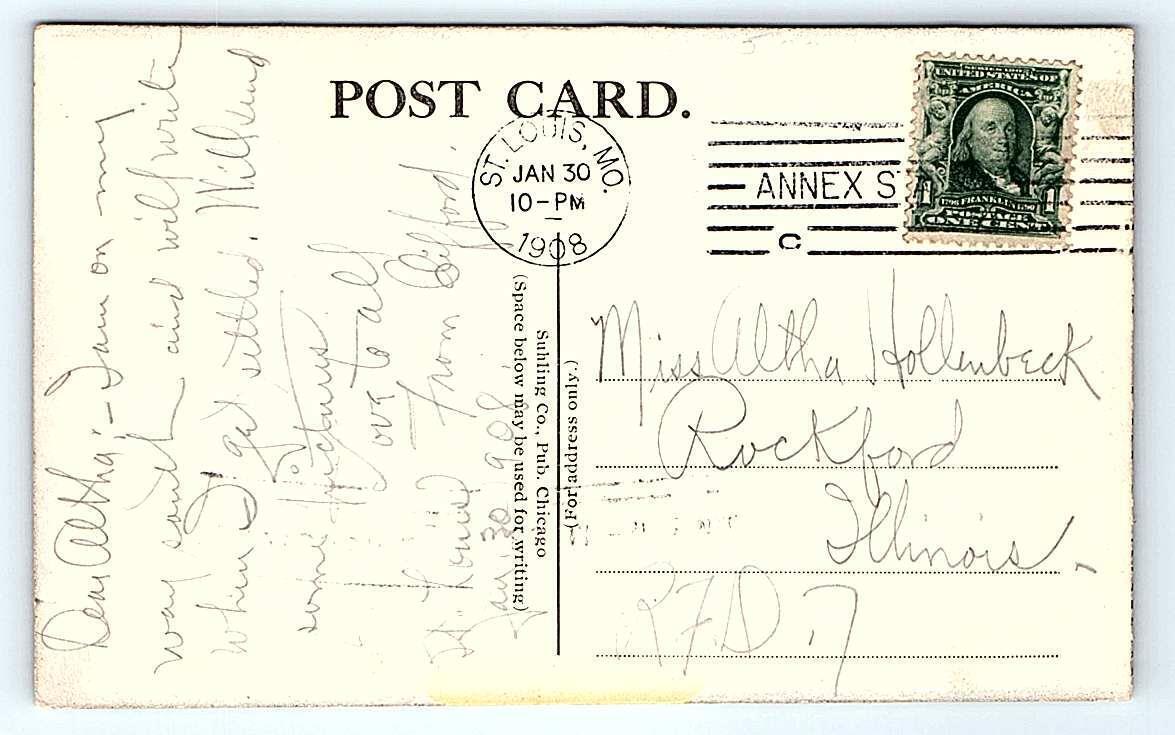 POST CARD.
ST. LOUIS, MO.
JAN 30
10-PM
1908
ANNEX S
C
SERIES 1902
UNITED STATES OF
AMERICA
1 1
1706 FRANKLIN 1790
POSTAGE
ONE CENT
Dear Altha;- I am on my
way south and will write
when I get settled. Will send
some pictures
Love to all
From Gifford.
St. Louis
Jan. 30 1908
(Space below may be used for writing)
Suhling Co., Pub. Chicago
(For address only.)
Miss Altha Hollenbeck
Rockford
Illinois.
RFD. 7